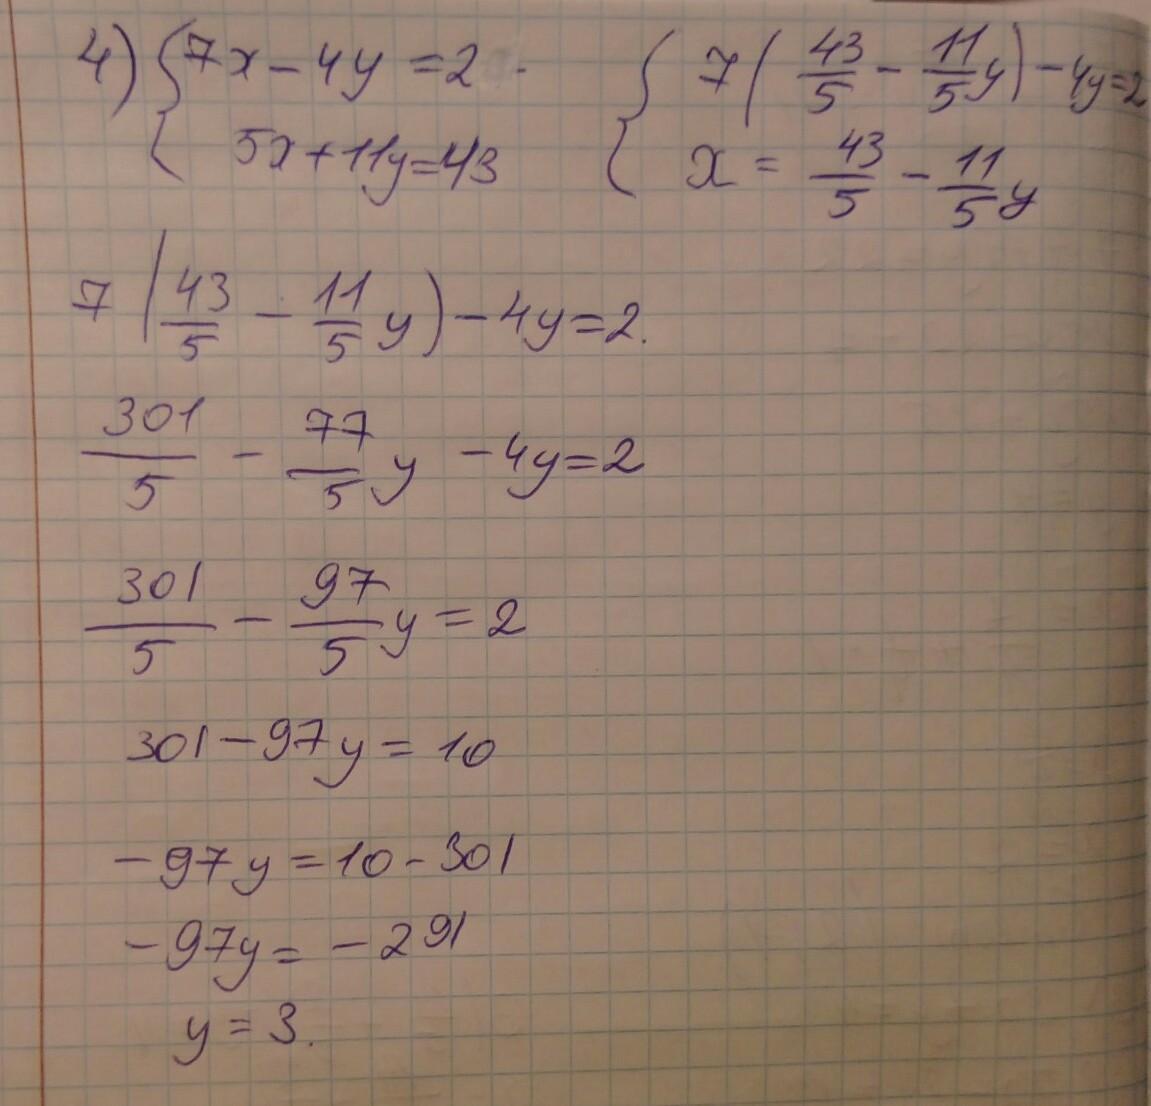 4) { 7x - 4y = 2 { 7 ( 43/5 - 11/5 y ) - 4y = 2
5x + 11y = 43 x = 43/5 - 11/5 y
7 ( 43/5 - 11/5 y ) - 4y = 2.
301/5 - 77/5 y - 4y = 2
301/5 - 97/5 y = 2
301 - 97y = 10
- 97y = 10 - 301
- 97y = - 291
y = 3.